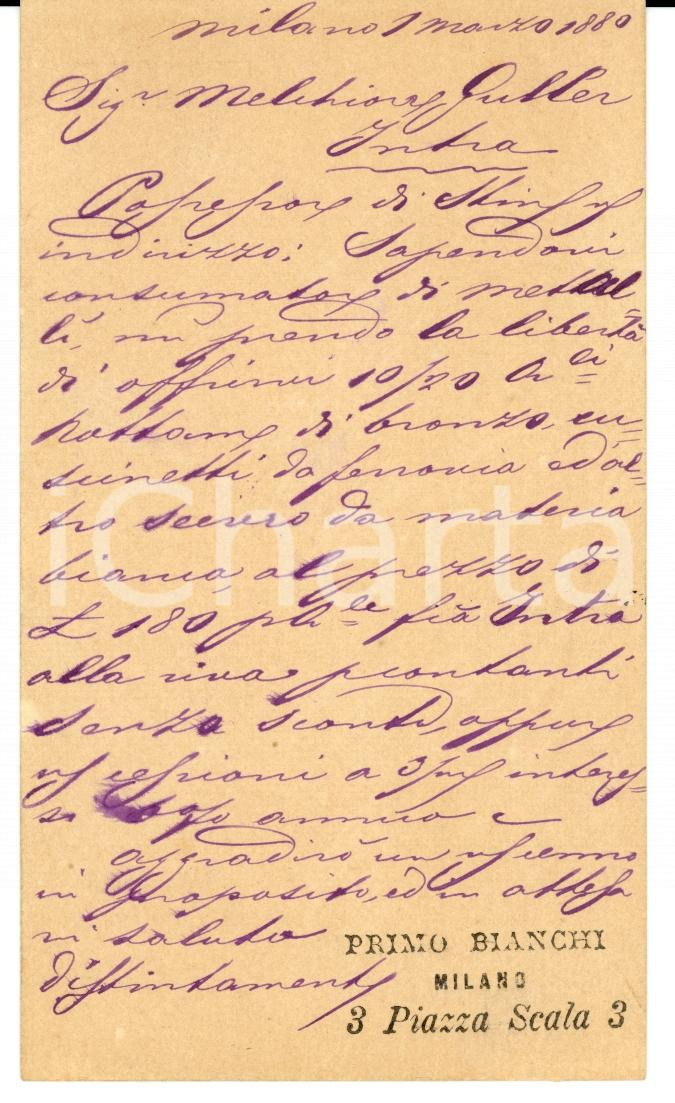 Milano 1 marzo 1880
Sigr Melchiorre Gutler
Intra
Possessore di
indirizzo; Sapendovi
consumatore di mettal=
li, mi prendo la libertà
di offrirvi 10/20 li
Rottame di bronzo, cu=
scinetti da ferrovia ed al=
tro scevro da materia
bianca, al prezzo di
£ 180 fco Intra
alla riva pcontanti
senza sconti, oppure
a 3/m interes=
si annuo
aggradirò un
in proposito, ed in attesa
vi saluto
Distintamente
PRIMO BIANCHI
MILANO
3 Piazza Scala 3
iCharta